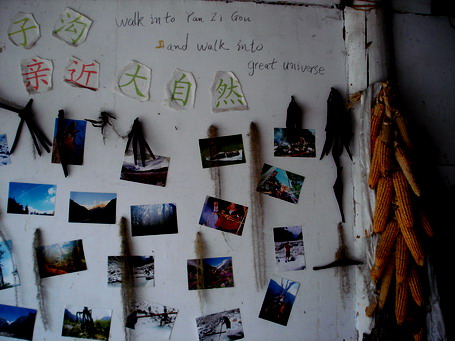 子沟 walk into Yan Zi Gou
and walk into
亲近大自然 great universe